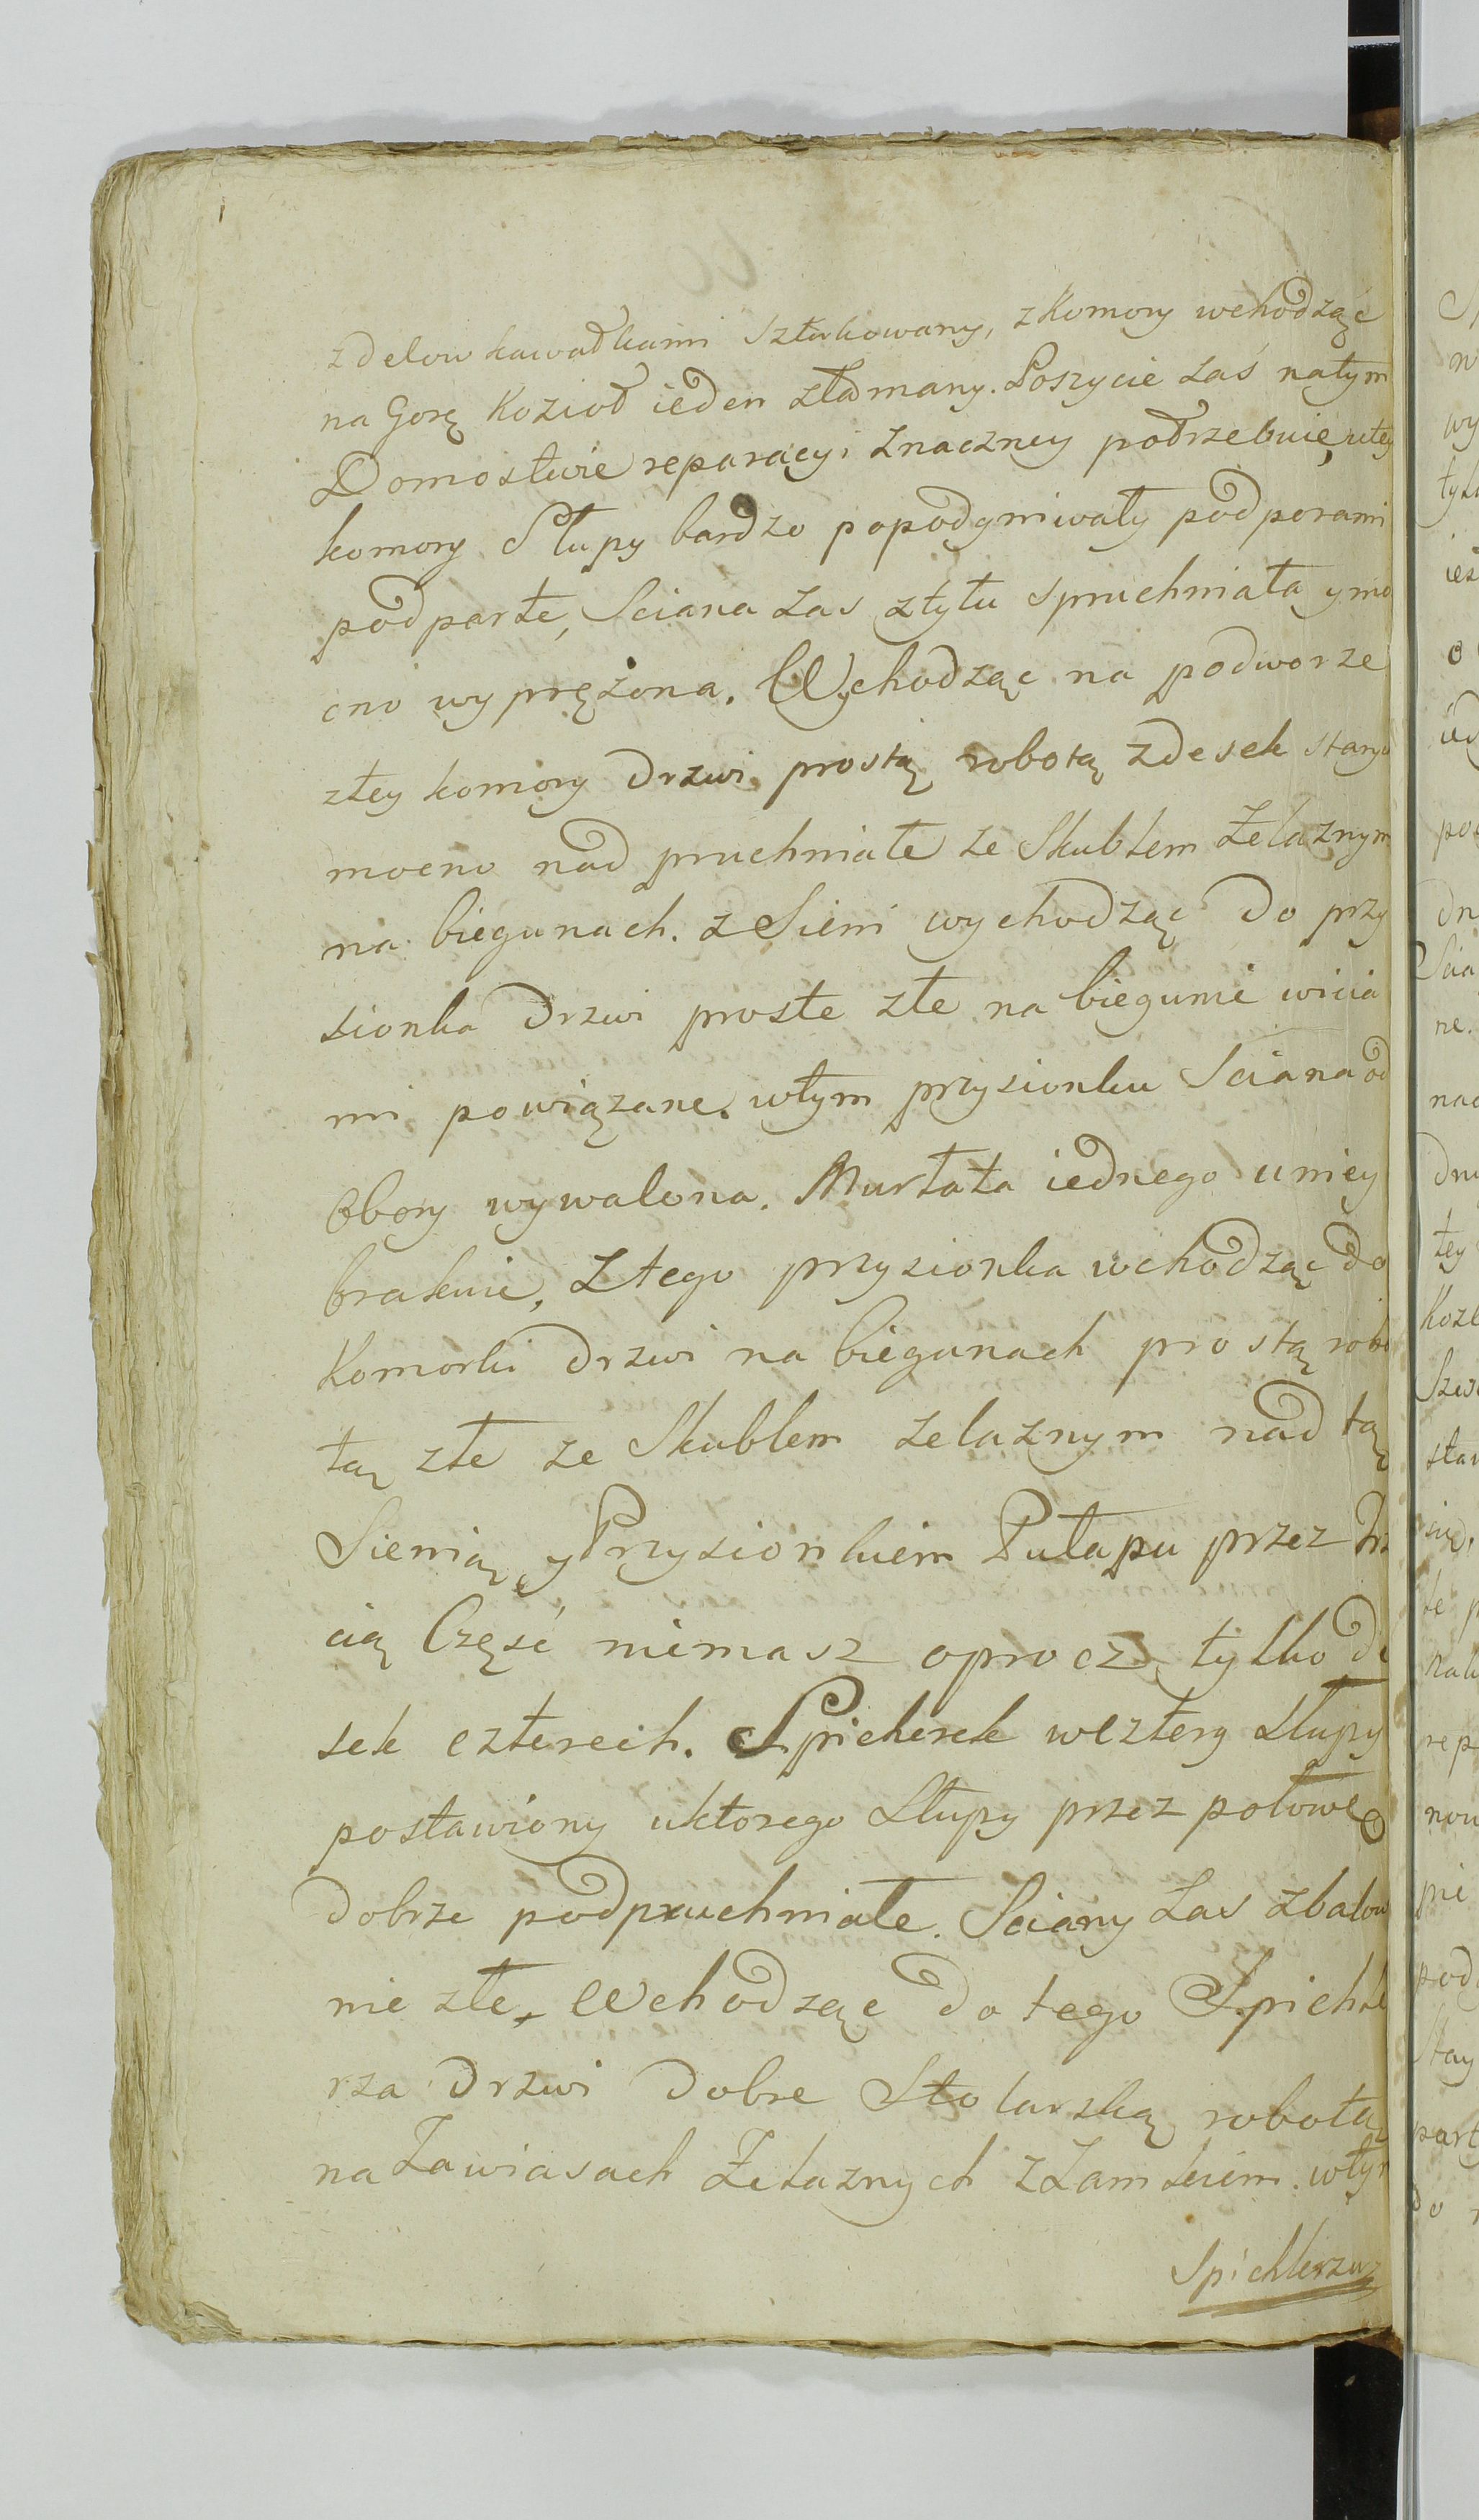 z delow kawałkami Sztukowany, z Komory wchodząc
na Gorę Kozioł ieden złamany. Poszycie zaś natym
Domostwie reparacyi znaczney potrzebuie, utey
komory Słupy bardzo popodgniwały podporami
podparte, Sciana zas ztyłu spruchniała y mo
cno wyprężona. Wychodząc na podworze
ztey komory drzwi prostą robotą zdesek stary
mocno nad pruchniałe ze Skublem Żelaznym
na biegunach. z Sieni wychodząc do przy
sionka drzwi proste złe na biegunie wicia
mi powiązane. wtym przysionku Sciana od
Obory wywalona. Murłata iednego u niey
brakuie, ztego przysionka wchodząc do
Komorki drzwi na biegunach prostą robo
tą złe ze Skublem żelaznym nad tą
Sienią y Przysionkiem Pułapu przez trze
cią Część niemasz oprocz tylko de
sek czterech. Spicherek wcztery słupy
postawiony uktorego słupy przez połowę
dobrze podpruchniałe. Sciany zas zbalow
nie złe, Wchodząc do tego Spichle
rza drzwi dobre Stolarską robotą
na Zawiasach Żelaznych z Zamkiem. wtym
Spichlerzu